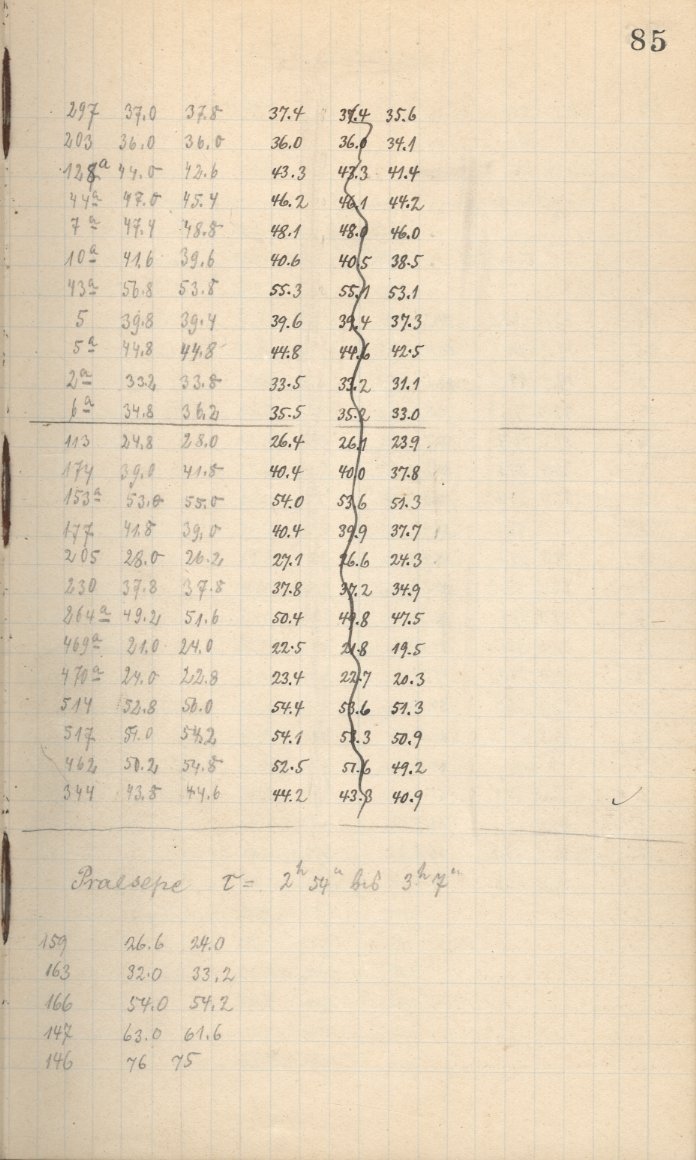 85
297 37.0 37.8 37.4 37.4 35.6
203 36.0 36.0 36.0 36.0 34.1
128a 44.0 42.6 43.3 43.3 41.4
44a 47.0 45.4 46.2 46.1 44.2
7a 47.4 48.8 48.1 48.0 46.0
10a 41.6 39.6 40.6 40.5 38.5
43a 56.8 53.8 55.3 55.1 53.1
5 39.8 39.4 39.6 39.4 37.3
5a 44.8 44.8 44.8 44.6 42.5
2a 33.2 33.8 33.5 33.2 31.1
6a 34.8 36.2 35.5 35.2 33.0
113 24.8 28.0 26.4 26.1 23.9
174 39.0 41.8 40.4 40.0 37.8
153a 53.0 55.0 54.0 53.6 51.3
177 41.8 39.0 40.4 39.9 37.7
205 28.0 26.2 27.1 26.6 24.3
230 37.8 37.8 37.8 37.2 34.9
264a 49.2 51.6 50.4 49.8 47.5
469a 21.0 24.0 22.5 21.8 19.5
470a 24.0 22.8 23.4 22.7 20.3
514 52.8 56.0 54.4 53.6 51.3
517 51.0 57.2 54.1 53.3 50.9
462 50.2 54.8 52.5 51.6 49.2
344 43.8 44.6 44.2 43.3 40.9
Praesepe τ = 2h 54m bis 3h 7m
159 26.6 24.0
163 32.0 33.2
166 54.0 54.2
147 63.0 61.6
146 76 75